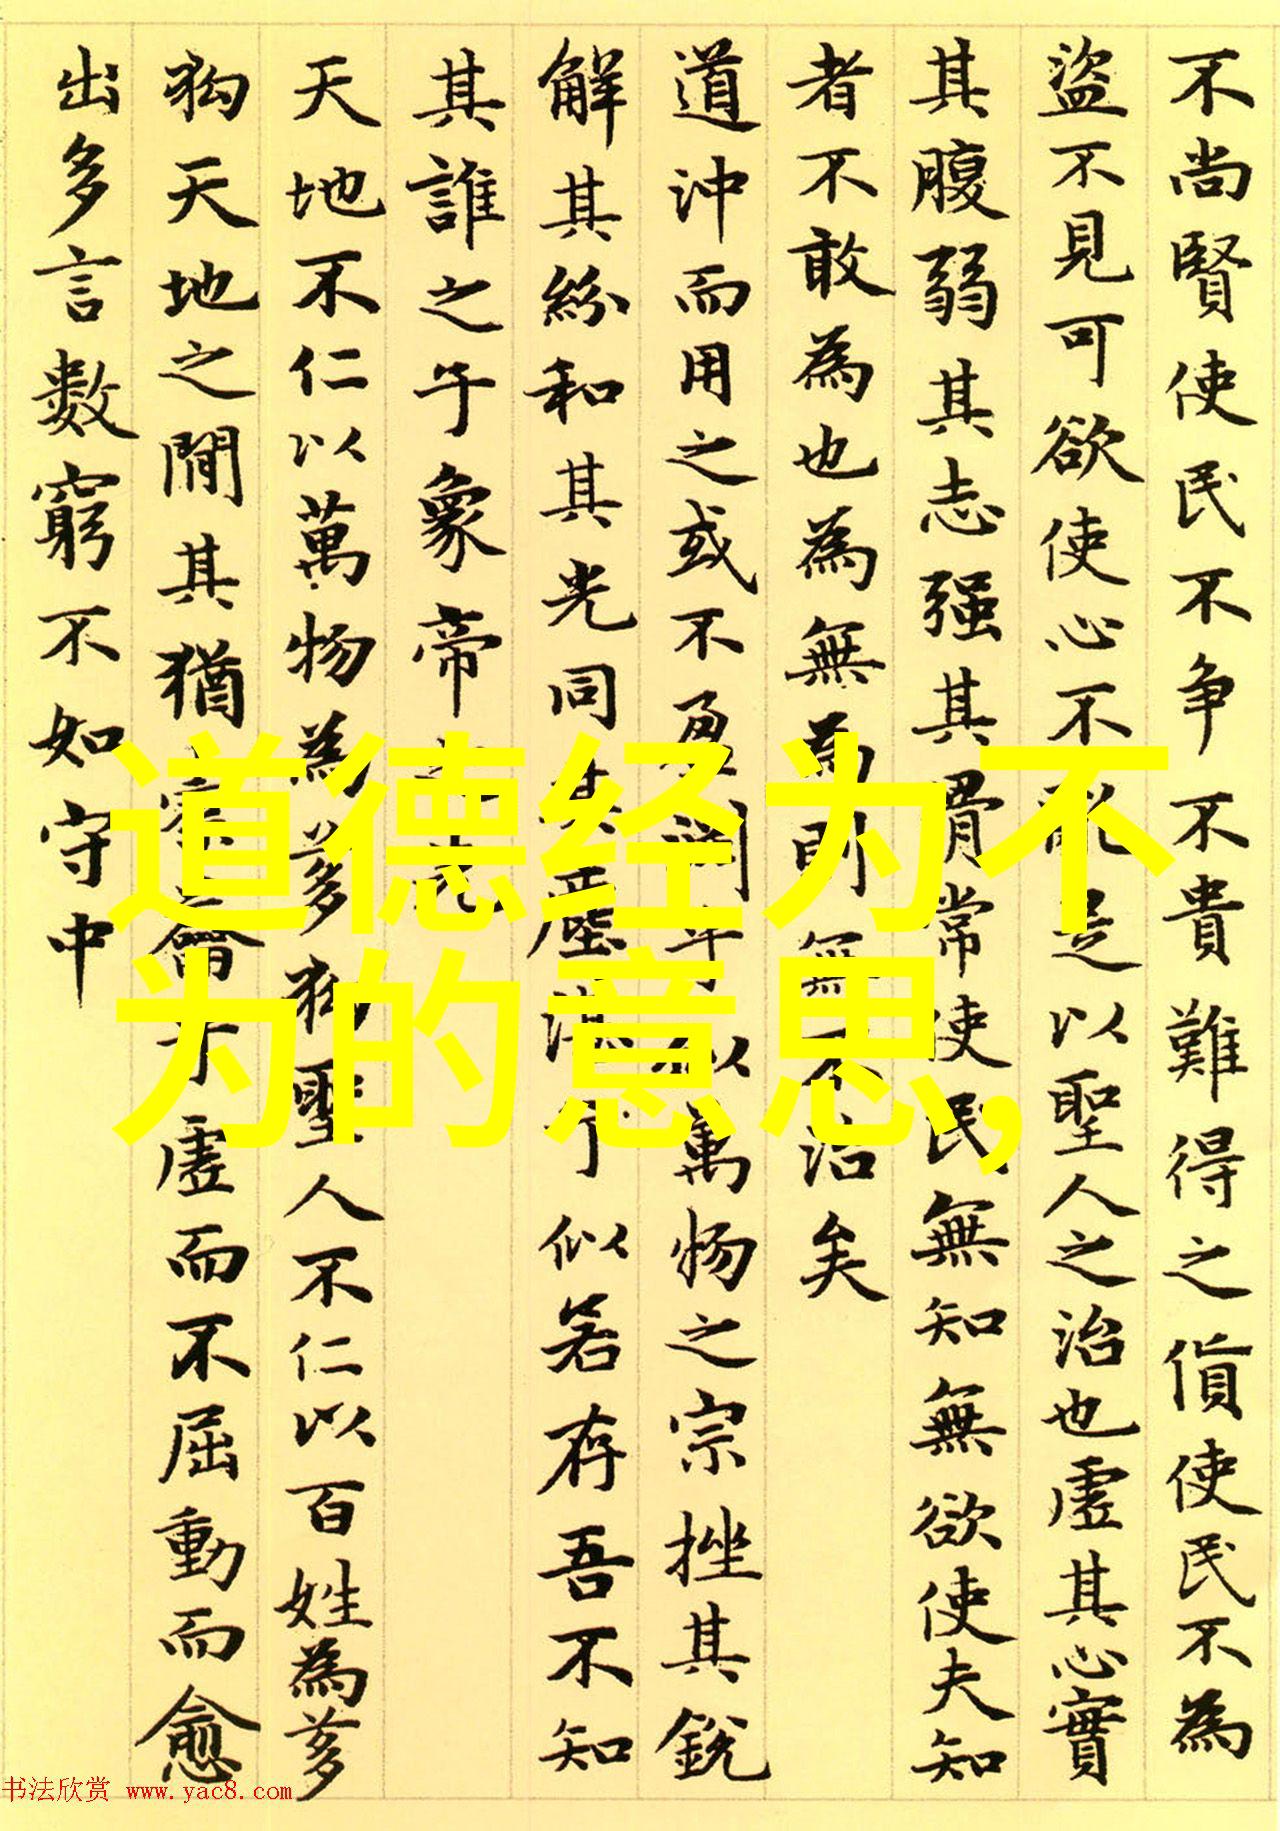 不尚賢使民不争不貴難得之貨使民不為
盜不見可欲使心不亂是以聖人之治也虛其心實
其腹弱其志强其骨常使民無知無欲使夫知
者不敢為也為無為則無不治矣
道沖而用之或不盈淵乎似萬物之宗挫其銳
解其紛和其光同其塵湛乎似若存吾不知
其誰之子象帝之先
天地不仁以萬物為芻狗聖人不仁以百姓為芻
狗天地之間其猶橐籥乎虛而不屈動而愈
出多言數窮不如守中
道德经为不
为的意思,
书法欣赏 www.yac8.com